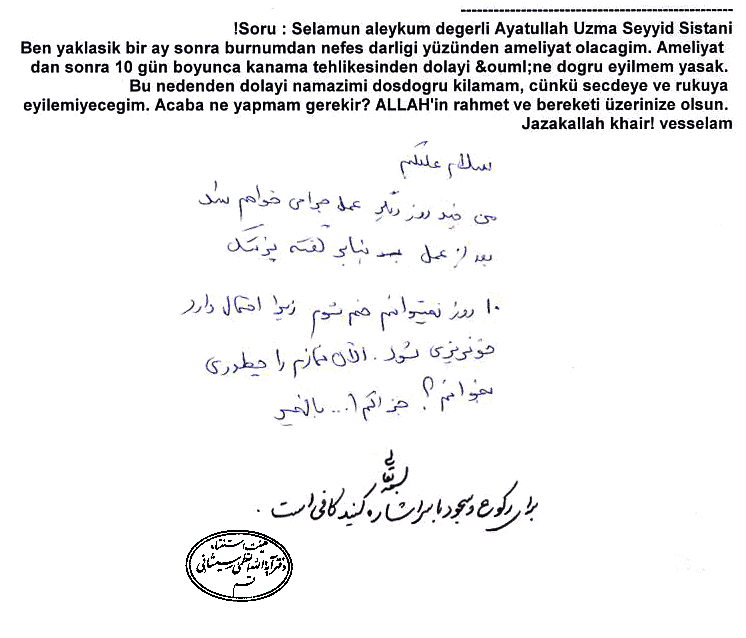 !Soru : Selamun aleykum degerli Ayatullah Uzma Seyyid Sistani
Ben yaklasik bir ay sonra burnumdan nefes darligi yüzünden ameliyat olacagim. Ameliyat
dan sonra 10 gün boyunca kanama tehlikesinden dolayi &ouml;ne dogru eyilmem yasak.
Bu nedenden dolayi namazimi dosdogru kilamam, cünkü secdeye ve rukuya
eyilemiyecegim. Acaba ne yapmam gerekir? ALLAH'in rahmet ve bereketi üzerinize olsun.
Jazakallah khair! vesselam
سلام علیکم
من چند روز دیگر عمل جراحی خواهم شد
بعد از عمل بنابر گفته پزشک
۱۰ روز نمیتوانم خم شوم زیرا احتمال دارد
خونریزی شود. الآن نمازم را چطوری
بخوانم؟ جزاکم ا... بالخیر
بسمه تعالی
برای رکوع و سجود با سر اشاره کنید کافی است.
هیئت استفتاء
دفتر آیة الله العظمی سیستانی
قم